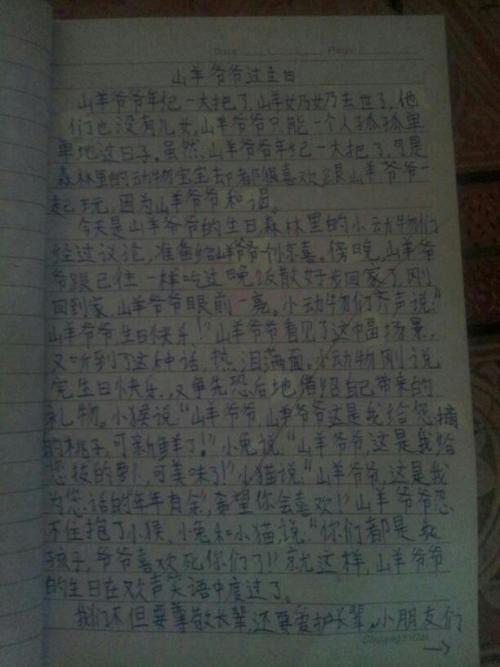 Date
Page
山羊爷爷过生日
山羊爷爷年纪一大把了,山羊奶奶去世了,他
们也没有儿女,山羊爷爷只能一个人孤孤单
单地过日子。虽然山羊爷爷年纪一大把了,可是
森林里的动物宝宝却都很喜欢跟山羊爷爷一
起玩,因为山羊爷爷和谒。
今天是山羊爷爷的生日,森林里的小动物们
经过议论,准备给山羊爷爷一个惊喜。傍晚,山羊爷
爷跟已往一样吃过晚饭散好步回家了,刚
回到家,山羊爷爷眼前一亮。小动物们齐声说:“
山羊爷爷,生日快乐!”山羊爷爷看见了这幅场景,
又听到了这种话,热泪满面。小动物刚说
完生日快乐,又争先恐后地借绍自己带来的
礼物。小猴说“山羊爷爷,山羊爷爷这是我给您摘
的桃子,可新鲜了!”小兔说“山羊爷爷,这是我给
您拔的萝卜,可美味了!”小猫说“山羊爷爷,这是我
为您话的年年有余,希望你会喜欢!”山羊爷爷忍
不住抱了小猴、小兔和小猫,说“你们都是
孩子,爷爷喜欢死你们了!”就这样,山羊爷爷
的生日在欢声笑语中度过了。
我们不但要尊敬长辈,还要爱护长辈,小朋友们
→